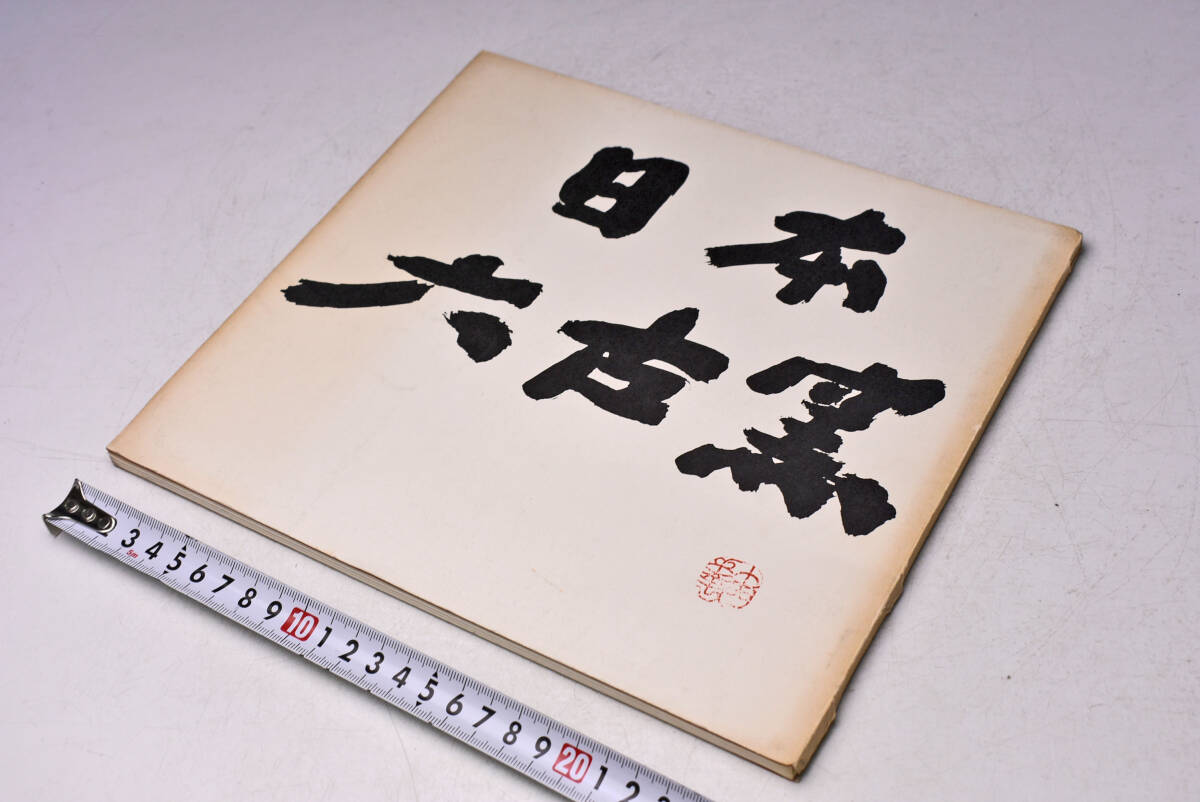 日本
六古窯
3 4 5 6 7 8 9 10 1 2 3 4 5 6 7 8 9 20 1 2
5m